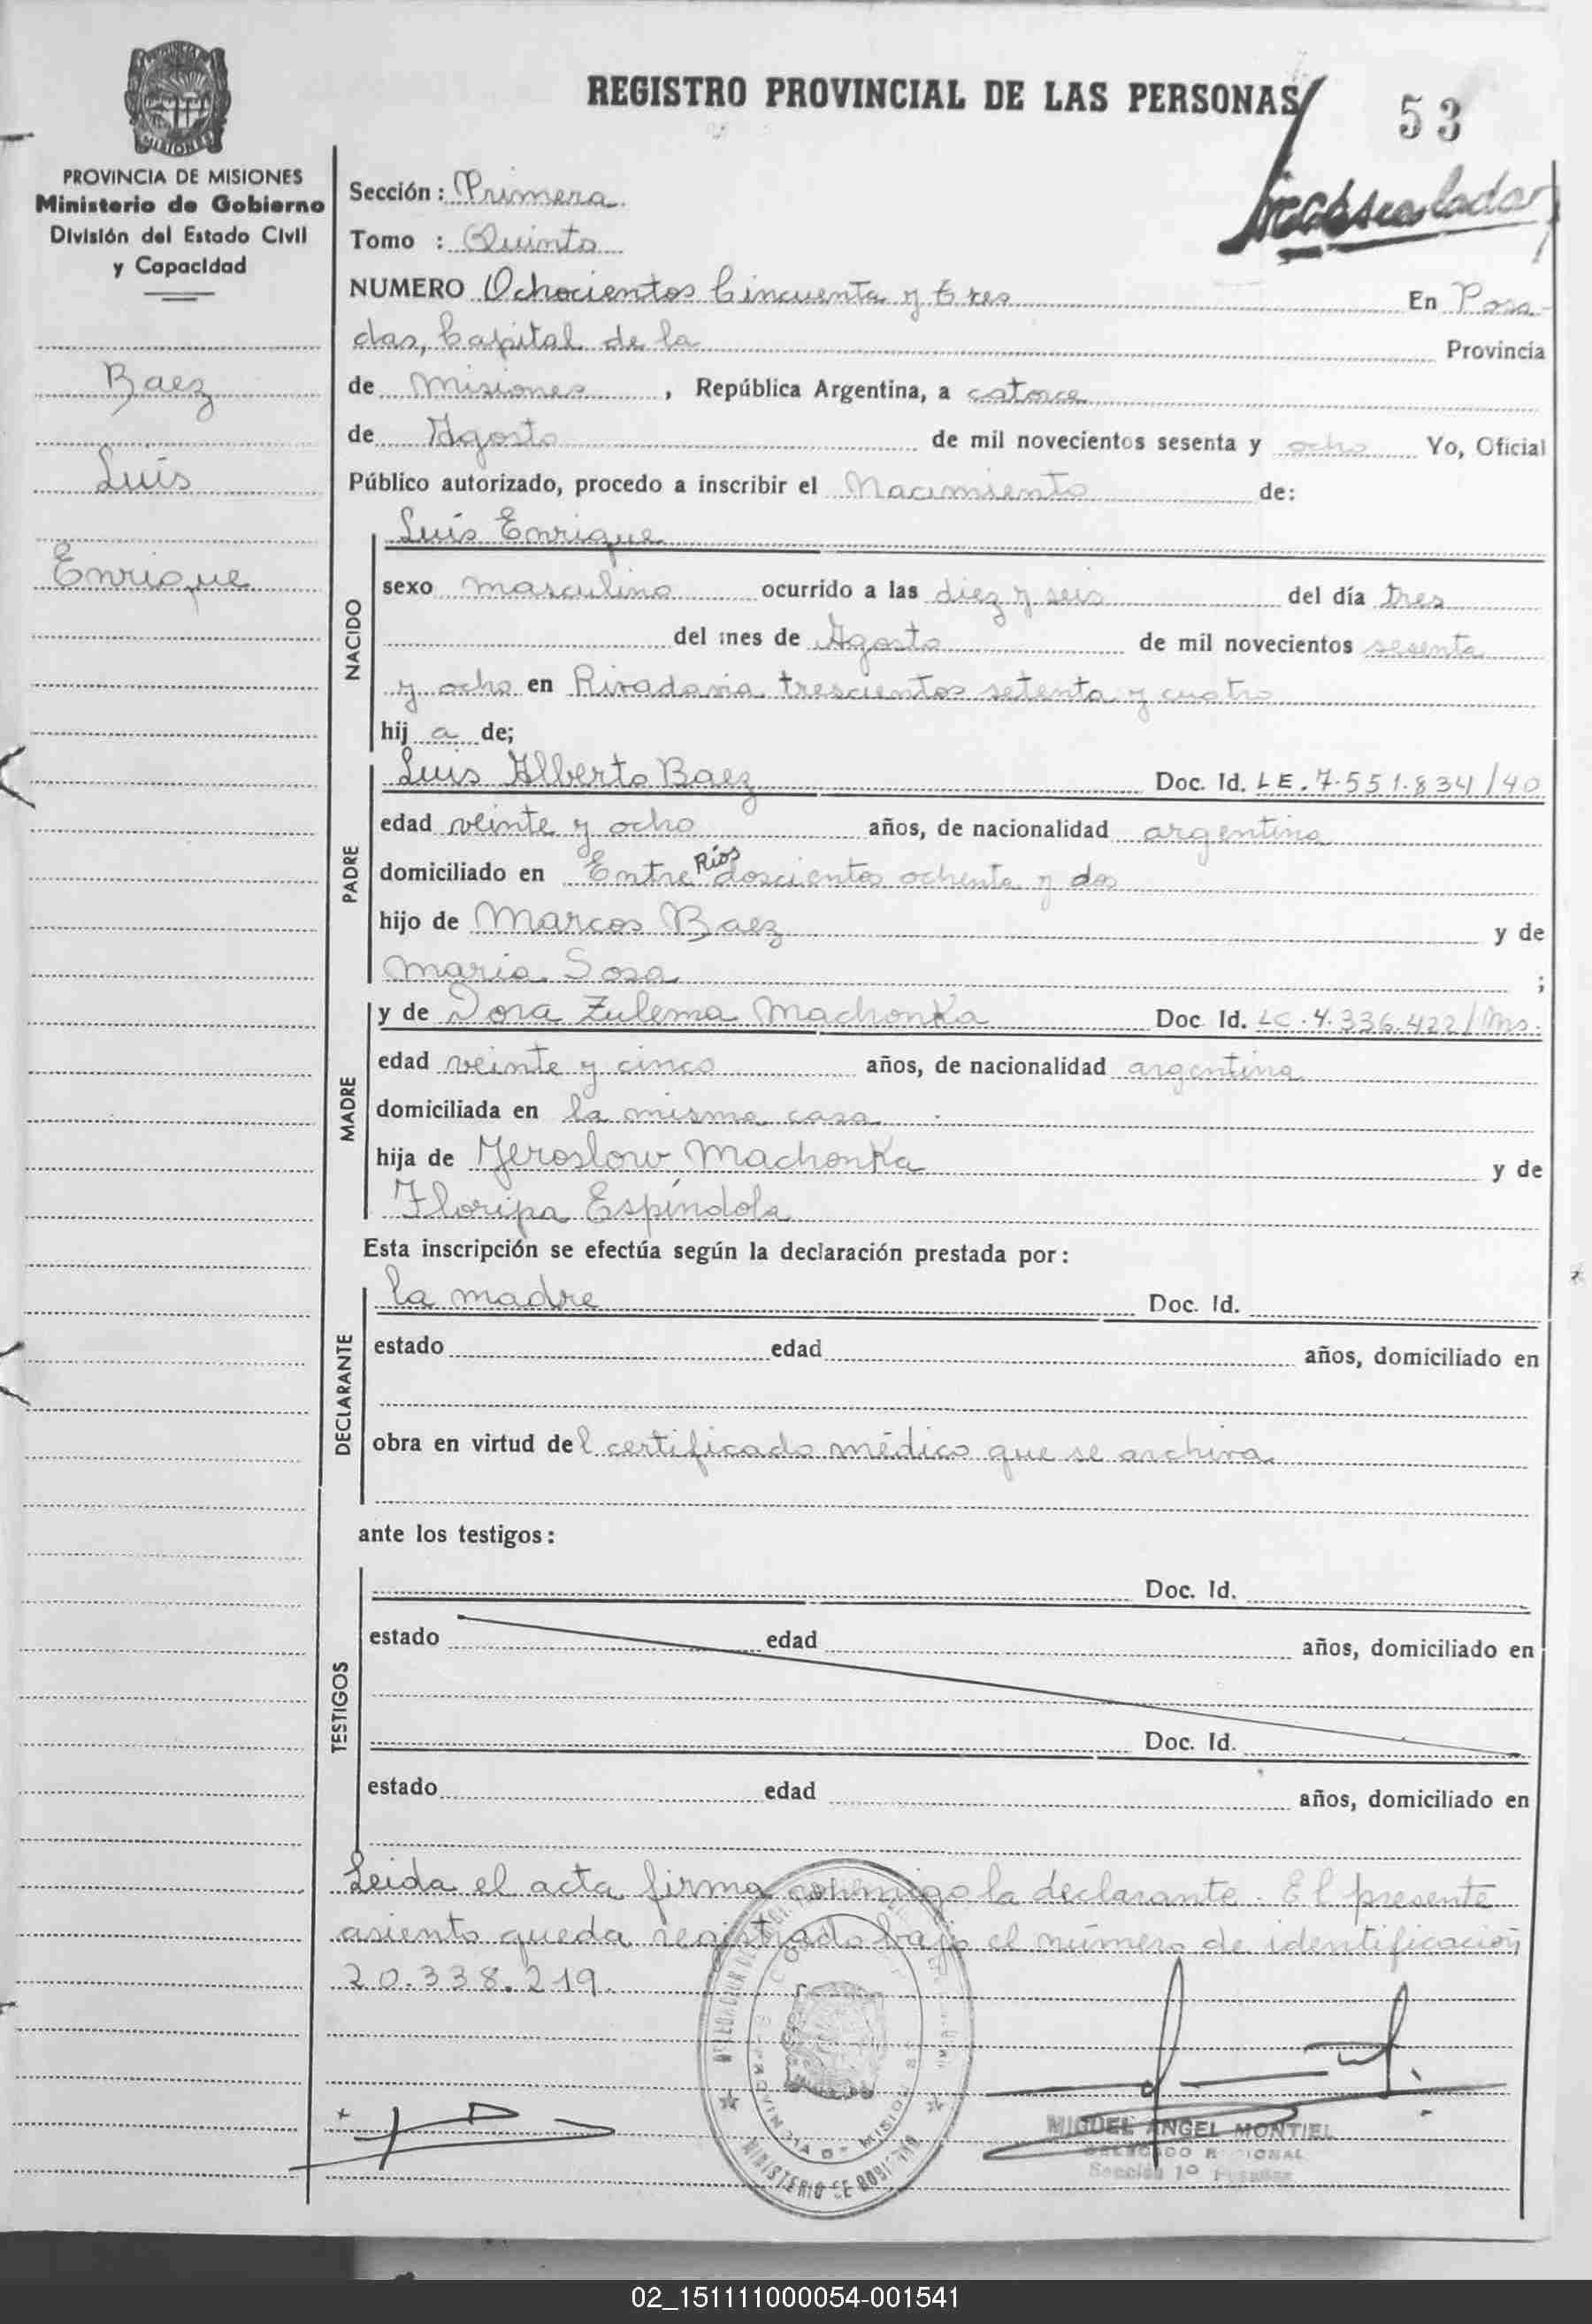 PROVINCIA DE MISIONES
Ministerio de Gobierno
División del Estado Civil
y Capacidad
Baez
Luis
Enrique
REGISTRO PROVINCIAL DE LAS PERSONAS
53
Sección: Primera
Tomo : Quinto
NUMERO Ochocientos Cincuenta y tres En Posa-
das, Capital de la Provincia
de Misiones, República Argentina, a catorce
de Agosto de mil novecientos sesenta y ocho Yo, Oficial
Público autorizado, procedo a inscribir el Nacimiento de:
NACIDO
Luis Enrique
sexo masculino ocurrido a las diez y seis del día tres
del mes de Agosto de mil novecientos sesenta
y ocho en Rivadavia trescientos setenta y cuatro
hij a de;
PADRE
Luis Alberto Baez Doc. Id. LE. 7.551.834/40
edad veinte y ocho años, de nacionalidad argentina
domiciliado en Entre Ríos doscientos ochenta y dos
hijo de Marcos Baez y de
María Sosa ;
MADRE
y de Dora Zulema Machonka Doc. Id. LC. 4.336.422/Ms.
edad veinte y cinco años, de nacionalidad argentina
domiciliada en la misma casa
hija de Jeroslow Machonka y de
Floripa Espíndola
Esta inscripción se efectúa según la declaración prestada por:
DECLARANTE
la madre Doc. Id.
estado edad años, domiciliado en
obra en virtud del certificado médico que se archiva
ante los testigos:
TESTIGOS
Doc. Id.
estado edad años, domiciliado en
Doc. Id.
estado edad años, domiciliado en
Leida el acta firma conmigo la declarante. El presente
asiento queda registrado bajo el número de identificación
20.338.219.
PROVINCIA DE MISIONES
MINISTERIO DE GOBIERNO
MIGUEL ANGEL MONTIEL
DELEGADO REGIONAL
Sección 1º Posadas
02_151111000054-001541